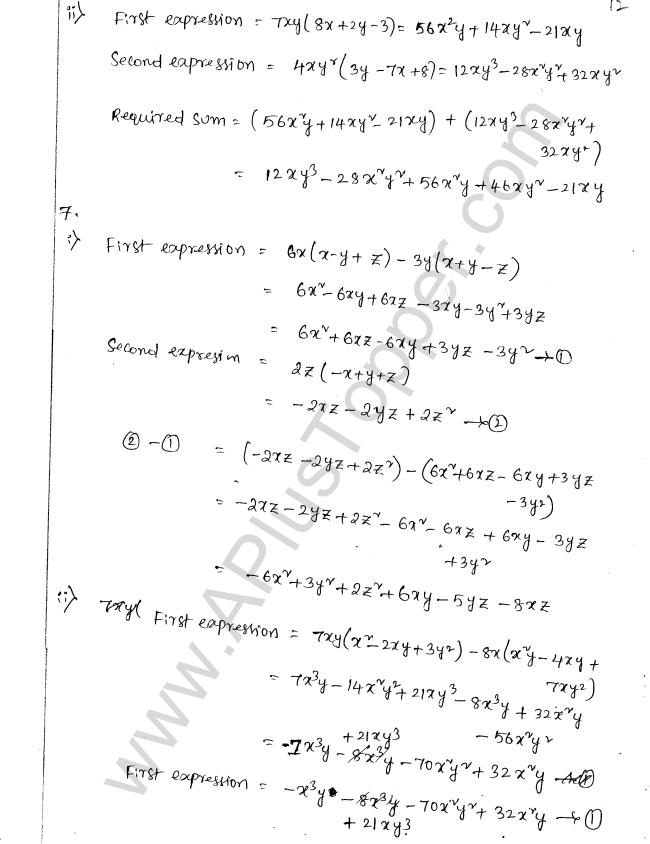 12
ii) First expression = 7xy(8x+2y-3) = 56x²y + 14xy² - 21xy
Second expression = 4xy²(3y - 7x + 8) = 12xy³ - 28x²y² + 32xy²
Required sum = (56x²y + 14xy² - 21xy) + (12xy³ - 28x²y² +
32xy²)
= 12xy³ - 28x²y² + 56x²y + 46xy² - 21xy
7.
i) First expression = 6x(x-y+z) - 3y(x+y-z)
= 6x² - 6xy + 6xz - 3xy - 3y² + 3yz
= 6x² + 6xz - 6xy + 3yz - 3y² → ①
Second expresim = 2z(-x+y+z)
= -2xz - 2yz + 2z² → ②
② - ① = (-2xz - 2yz + 2z²) - (6x² + 6xz - 6xy + 3yz
- 3y²)
= -2xz - 2yz + 2z² - 6x² - 6xz + 6xy - 3yz
+ 3y²
= -6x² + 3y² + 2z² + 6xy - 5yz - 8xz
ii) 7xy( First expression = 7xy(x² - 2xy + 3y²) - 8x(x²y - 4xy +
7xy²)
= 7x³y - 14x²y² + 21xy³ - 8x³y + 32x²y
- 56x²y²
+ 21xy³
= -7x³y - 8x³y - 70x²y² + 32x²y
First expression = -x³y - 8x³y - 70x²y² + 32x²y → ①
+ 21xy³
www.APlusTopper.com